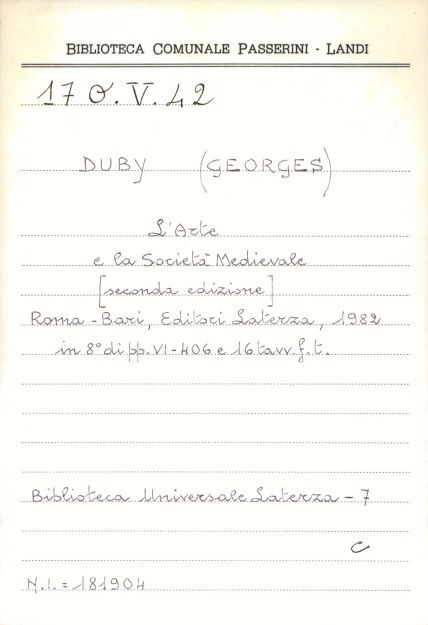 BIBLIOTECA COMUNALE PASSERINI - LANDI
17 O.V.42
DUBY (GEORGES)
L'Arte
e la Società Medievale
[seconda edizione]
Roma - Bari, Editori Laterza, 1982
in 8° di pp. VI-406 e 16 tavv. f. t.
Biblioteca Universale Laterza - 7
C
N.I. = 181904